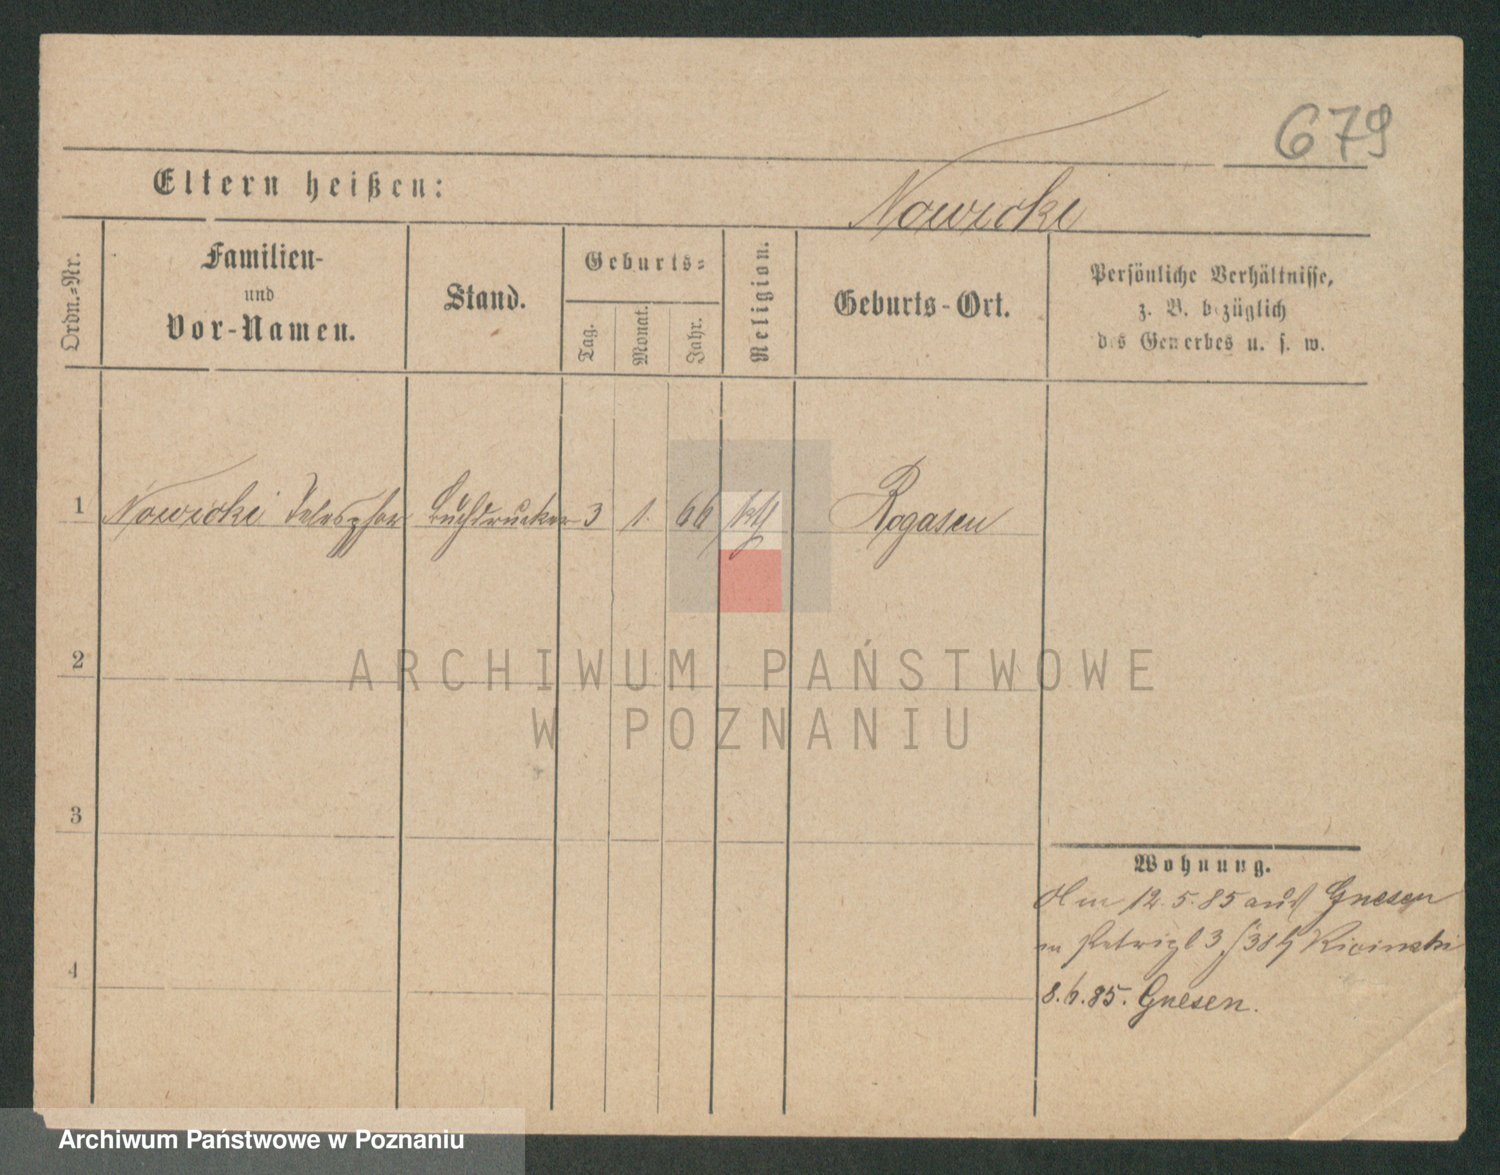 679
Eltern heißen:
Nowicki
Ordn.-Nr.
Familien-
und
Vor-Namen.
Stand.
Geburts-
Tag.
Monat.
Jahr.
Religion.
Geburts-Ort.
Persönliche Verhältnisse,
z. B. bezüglich
des Gewerbes u. s. w.
1 Nowicki Telesphor Buchdrucker 3 1. 66 kth Rogasen
2
3
4
Wohnung.
12. 5. 85 aus Gnesen
3
8. 6. 85. Gnesen.
ARCHIWUM PAŃSTWOWE
W POZNANIU
Archiwum Państwowe w Poznaniu